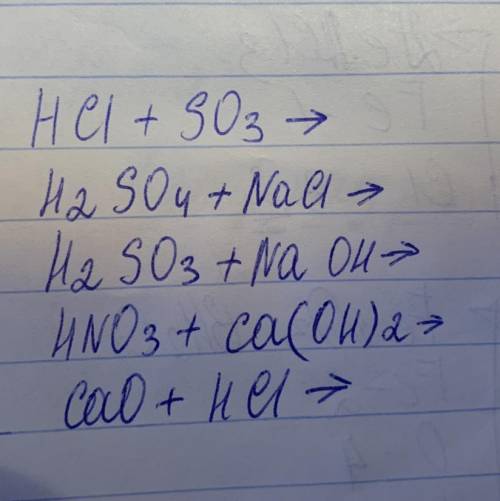 HCl + SO3 →
H2SO4 + NaCl →
H2SO3 + NaOH →
HNO3 + Ca(OH)2 →
CaO + HCl →